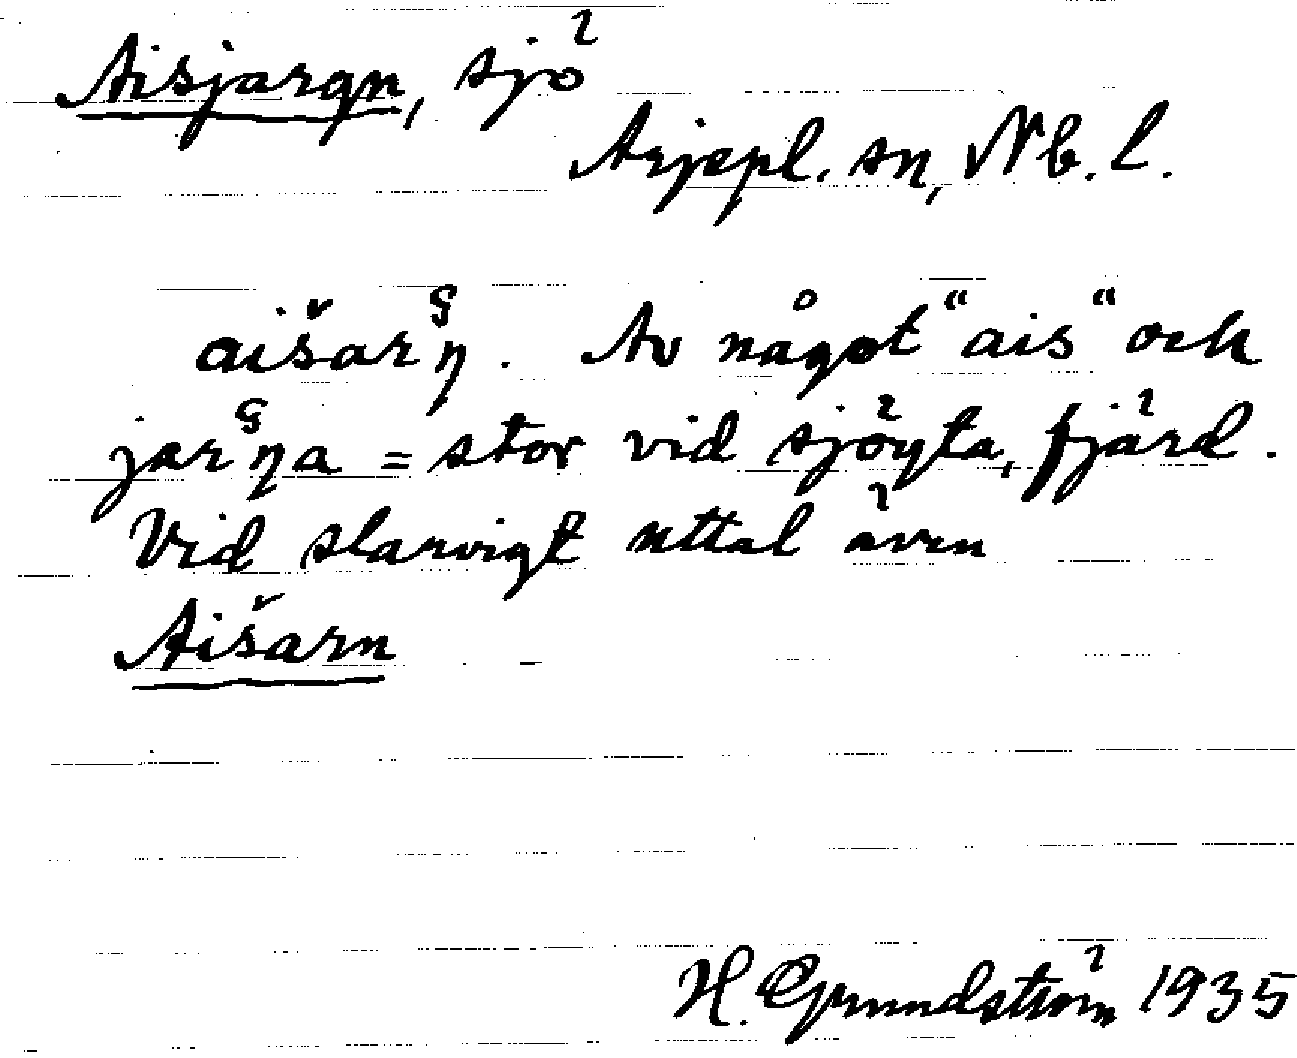 Aisjargn, sjö
Arjepl. sn, Nb. l.
aišarᶢŋ. Av något "ais" och
jarᶢŋa = stor vid sjöyta, fjärd.
Vid slarvigt uttal även
Aišarn
H. Grundström 1935